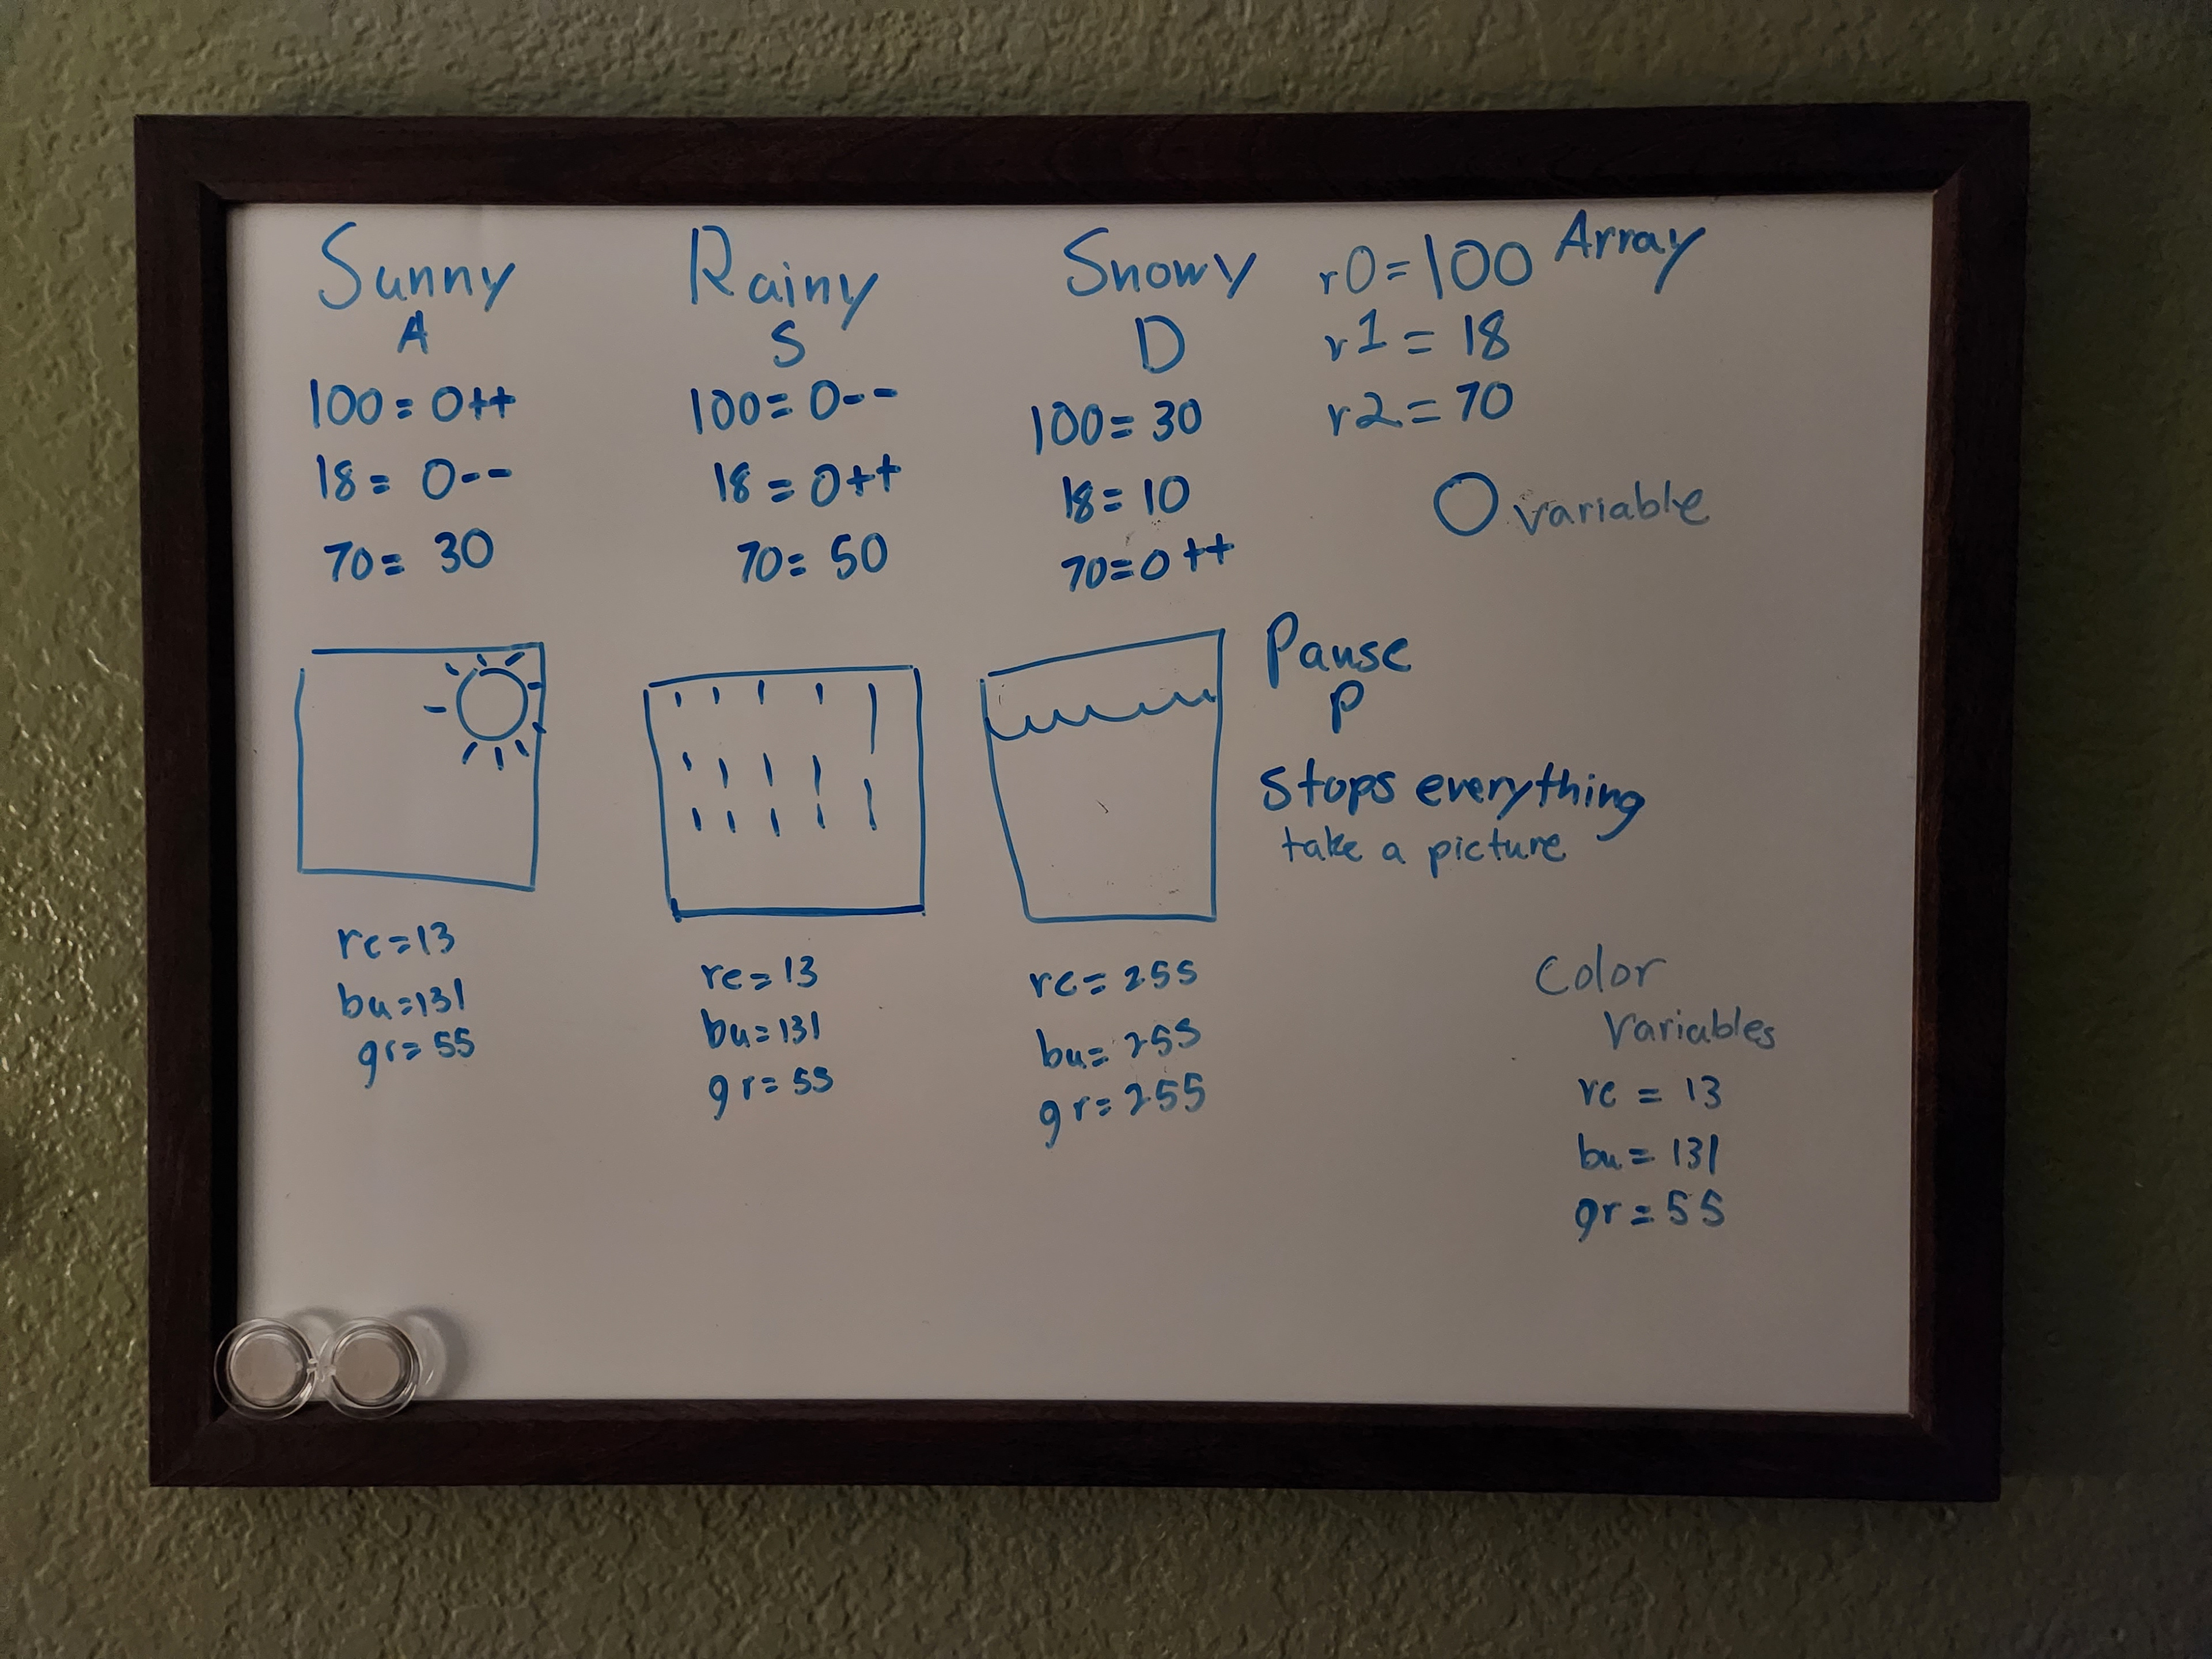 Sunny
A
100=0++
18=0--
70=30
rc=13
bu=131
gr=55
Rainy
S
100=0--
18=0++
70=50
re=13
bu=131
gr=55
Snowy
D
100=30
18=10
70=0++
rc=255
bu=255
gr=255
r0=100 Array
r1=18
r2=70
O variable
Pause
P
Stops everything
take a picture
Color
Variables
rc=13
bu=131
gr=55